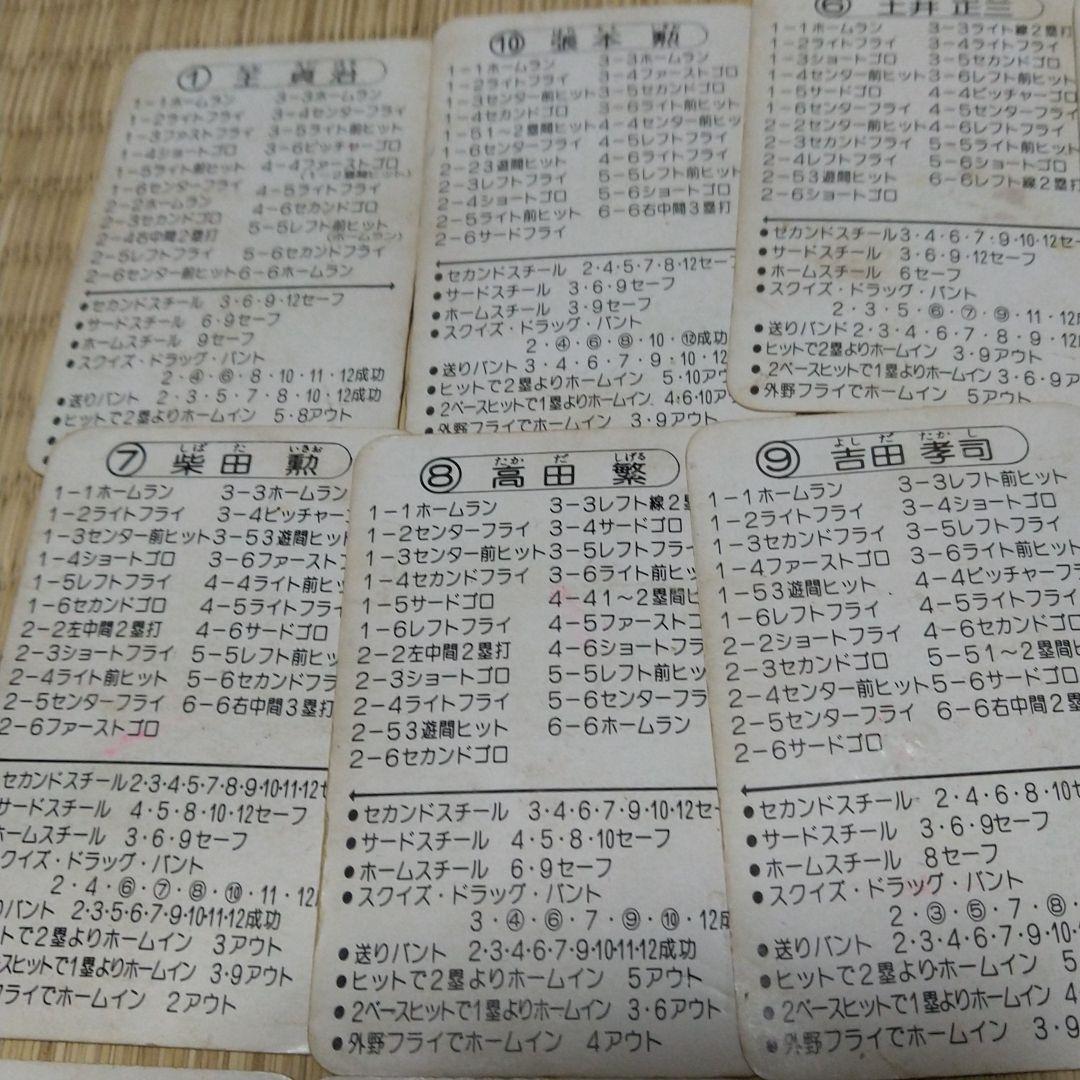 ① 王 貞治
1-1ホームラン 3-3ホームラン
1-2ライトフライ 3-4センターフライ
1-3ファストフライ 3-5ライト前ヒット
1-4ショートゴロ 3-6ピッチャーゴロ
1-5ライト前ヒット 4-4ファーストゴロ
(1-2塁間ヒット)
1-6センターフライ 4-5ライトフライ
2-2ホームラン 4-6セカンドゴロ
2-3セカンドゴロ 5-5レフト前ヒット
2-4右中間2塁打 (ホームラン)
2-5レフトフライ 5-6セカンドフライ
2-6センター前ヒット 6-6ホームラン
●セカンドスチール 3・6・9・12セーフ
●サードスチール 6・9セーフ
●ホームスチール 9セーフ
●スクイズ・ドラッグ・バント
2・④・⑥・8・10・11・12成功
●送りバント 2・3・5・7・8・10・12成功
●ヒットで2塁よりホームイン 5・8アウト
⑩ 張本 勲
1-1ホームラン 3-3ホームラン
1-2ライトフライ 3-4ファーストゴロ
1-3センター前ヒット 3-5セカンドゴロ
1-4セカンドゴロ 3-6ライト前ヒット
1-5 1-2塁間ヒット 4-4センター前ヒッ
1-6センターフライ 4-5レフトフライ
2-2 3遊間ヒット 4-6ライトフライ
2-3レフトフライ 5-5レフト前ヒッ
2-4ショートゴロ 5-6ショートゴロ
2-5ライト前ヒット 6-6右中間3塁打
2-6サードフライ
●セカンドスチール 2・4・5・7・8・12セーフ
●サードスチール 3・6・9セーフ
●ホームスチール 3・9セーフ
●スクイズ・ドラッグ・バント
2・④・⑥・⑧・10・⑫成功
●送りバント 3・4・6・7・9・10・12
●ヒットで2塁よりホームイン 5・10アウ
●2ベースヒットで1塁よりホームイン 4・6・10ア
●外野フライでホームイン 3・9アウト
⑥ 土井正三
1-1ホームラン 3-3ライト線2塁打
1-2ライトフライ 3-4ライトフライ
1-3ショートゴロ 3-5セカンドゴロ
1-4センター前ヒット 3-6レフト前ヒット
1-5サードゴロ 4-4ピッチャーゴロ
1-6センターフライ 4-5センターフ
2-2センター前ヒット 4-6レフトフライ
2-3セカンドフライ 5-5ライト前ヒッ
2-4レフトフライ 5-6ショートゴロ
2-5 3遊間ヒット 6-6レフト線2塁打
2-6ショートゴロ
●セカンドスチール 3・4・6・7・9・10・12セー
●サードスチール 3・6・9・12セーフ
●ホームスチール 6セーフ
●スクイズ・ドラッグ・バント
2・3・5・⑥・⑦・⑨・11・12
●送りバンド 2・3・4・6・7・8・9・12
●ヒットで2塁よりホームイン 3・9アウト
●2ベースヒットで1塁よりホームイン 3・6・9ア
●外野フライでホームイン 5アウト
しば た いさお
⑦ 柴田 勲
1-1ホームラン 3-3ホームラン
1-2ライトフライ 3-4ピッチャー
1-3センター前ヒット 3-5 3遊間ヒッ
1-4ショートゴロ 3-6ファースト
1-5レフトフライ 4-4ライト前ヒッ
1-6セカンドゴロ 4-5ライトフライ
2-2左中間2塁打 4-6サードゴロ
2-3ショートフライ 5-5レフト前ヒッ
2-4ライト前ヒット 5-6セカンドフラ
2-5センターフライ 6-6右中間3塁打
2-6ファーストゴロ
セカンドスチール 2・3・4・5・7・8・9・10・11・12セ
サードスチール 4・5・8・10・12セーフ
ホームスチール 3・6・9セーフ
クイズ・ドラッグ・バント
2・4・⑥・⑦・⑧・⑩・11・12
りバント 2・3・5・6・7・9・10・11・12成功
トで2塁よりホームイン 3アウト
スヒットで1塁よりホームイン 3・9アウト
フライでホームイン 2アウト
たか だ しげる
⑧ 高田 繁
1-1ホームラン 3-3レフト線2塁
1-2センターフライ 3-4サードゴロ
1-3センター前ヒット 3-5レフトフライ
1-4セカンドフライ 3-6ライト前ヒッ
1-5サードゴロ 4-4 1~2塁間ヒ
1-6レフトフライ 4-5ファースト
2-2左中間2塁打 4-6ショートフラ
2-3ショートゴロ 5-5レフト前ヒッ
2-4ライトフライ 5-6センターフラ
2-5 3遊間ヒット 6-6ホームラン
2-6セカンドゴロ
●セカンドスチール 3・4・6・7・9・10・12セー
●サードスチール 4・5・8・10セーフ
●ホームスチール 6・9セーフ
●スクイズ・ドラッグ・バント
3・④・⑥・7・⑨・⑩・12成
●送りバント 2・3・4・6・7・9・10・11・12成功
●ヒットで2塁よりホームイン 5アウト
●2ベースヒットで1塁よりホームイン 3・6アウト
●外野フライでホームイン 4アウト
よし だ たか し
⑨ 吉田孝司
1-1ホームラン 3-3レフト前ヒット
1-2ライトフライ 3-4ショートゴロ
1-3セカンドフライ 3-5レフトフライ
1-4ファーストゴロ 3-6ライト前ヒット
1-5 3遊間ヒット 4-4ピッチャーフラ
1-6レフトフライ 4-5ライトフライ
2-2ショートフライ 4-6セカンドゴロ
2-3セカンドゴロ 5-5 1~2塁間ヒ
2-4センター前ヒット 5-6サードゴロ
2-5センターフライ 6-6右中間2塁
2-6サードゴロ
●セカンドスチール 2・4・6・8・10セ
●サードスチール 3・6・9セーフ
●ホームスチール 8セーフ
●スクイズ・ドラッグ・バント
2・③・⑤・7・⑧・
●送りバント 2・3・4・6・7・9・10・
●ヒットで2塁よりホームイン 5
●2ベースヒットで1塁よりホームイン 4
●外野フライでホームイン 3・9